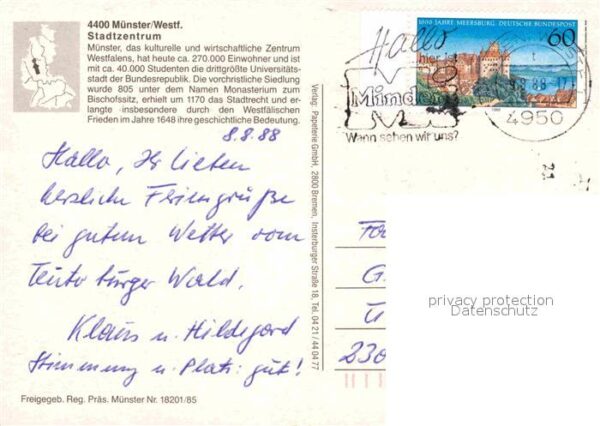 4400 Münster/Westf.
Stadtzentrum
Münster, das kulturelle und wirtschaftliche Zentrum
Westfalens, hat heute ca. 270.000 Einwohner und ist
mit ca. 40.000 Studenten die drittgrößte Universitäts-
stadt der Bundesrepublik. Die vorchristliche Siedlung
wurde 805 unter dem Namen Monasterium zum
Bischofssitz, erhielt um 1170 das Stadtrecht und er-
langte insbesondere durch den Westfälischen
Frieden im Jahre 1648 ihre geschichtliche Bedeutung.
8.8.88
Hallo, Ihr Lieben
herzliche Feriengrüße
bei gutem Wetter vom
Teutoburger Wald.
Klaus u. Hildegard
Stimmung u. Platz: gut!
Freigegeb. Reg. Präs. Münster Nr. 18201/85
Verlag: Papeterie GmbH, 2800 Bremen, Insterburger Straße 18, Tel. 04 21 / 44 04 77
1000 JAHRE MEERSBURG DEUTSCHE BUNDESPOST
60
Hallo
hier ist
Minden
Wann sehen wir uns?
88-17
4950
Fa
G
230
privacy protection
Datenschutz